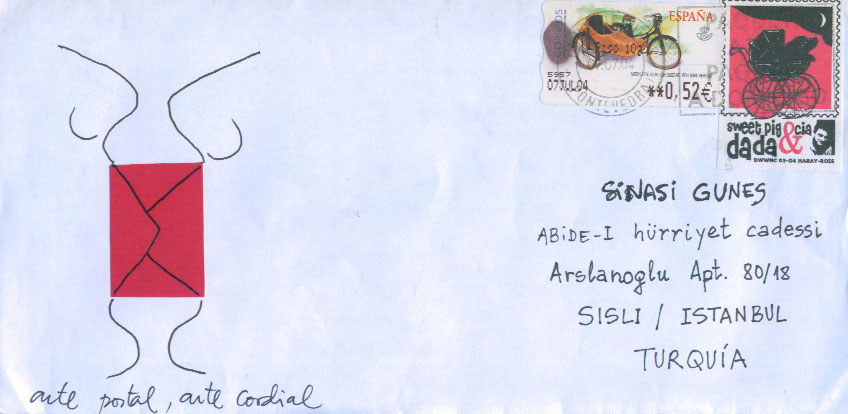 CORREOS
ESPAÑA
5957
07JUL04
**0,52€
PONTEVEDRA
sweet pig & cia
dada
DWWNC 03-04 HABAY-ROIS
SiNASi GUNEŞ
ABiDE-I hürriyet cadessi
Arslanoglu Apt. 80/18
SISLI / ISTANBUL
TURQUÍA
arte postal, arte cordial